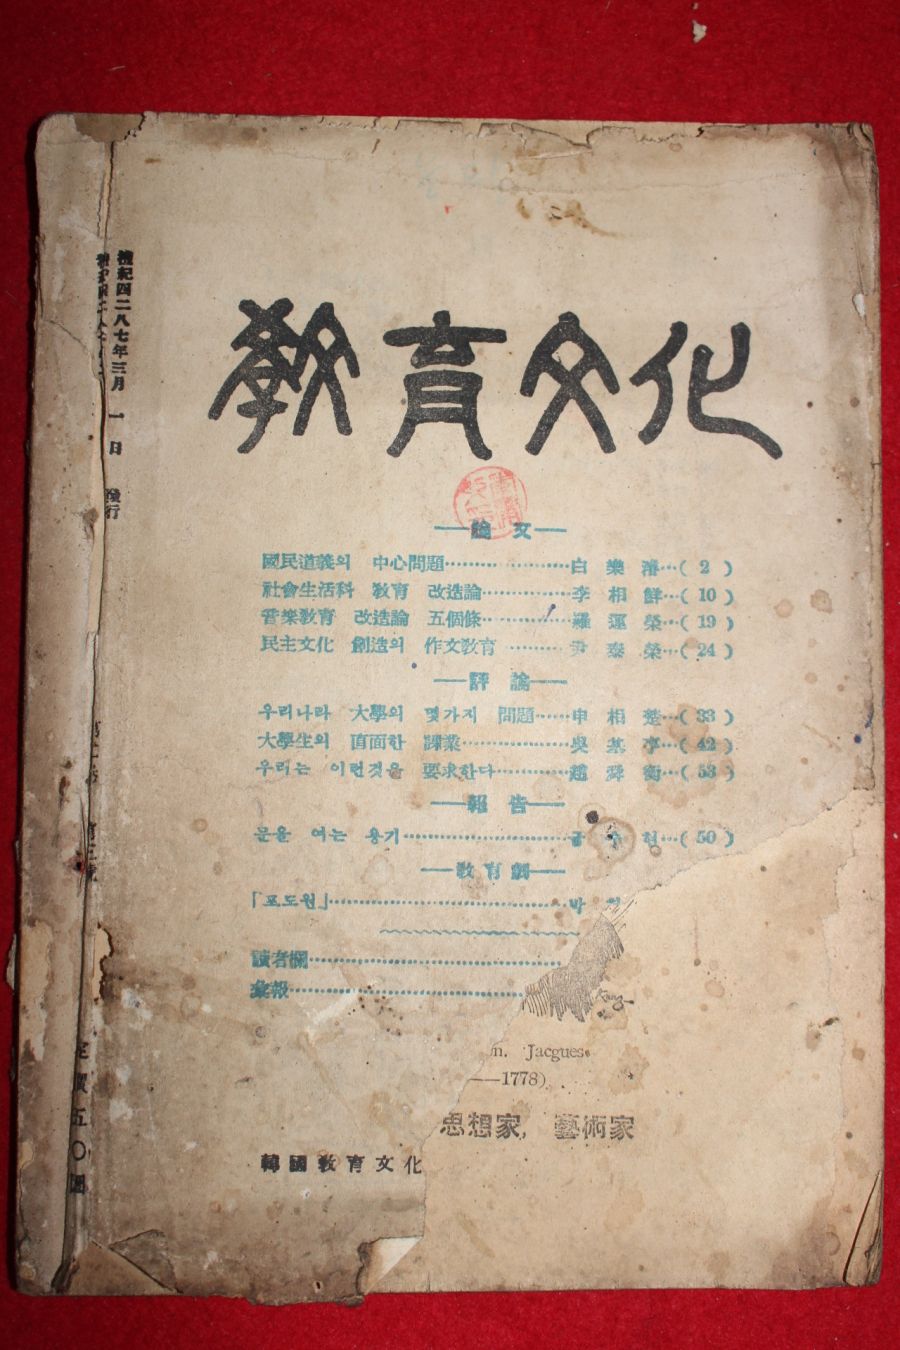 敎育文化
檀紀四二八七年三月一日 發行
論文
國民道義의 中心問題 白樂濬 (2)
社會生活科 敎育 改造論 李相鮮 (10)
音樂敎育 改造論 五個條 羅運榮 (19)
民主文化 創造의 作文敎育 尹泰榮 (24)
評論
우리나라 大學의 몇가지 問題 申相楚 (33)
大學生의 直面한 課業 吳基亨 (42)
우리는 이런것을 要求한다 趙舜衡 (53)
報告
문을 여는 용기 (50)
敎育劇
「포도원」 박
讀者欄
彙報
n. Jacgues
——1778)
思想家, 藝術家
韓國敎育文化
定價五〇圜